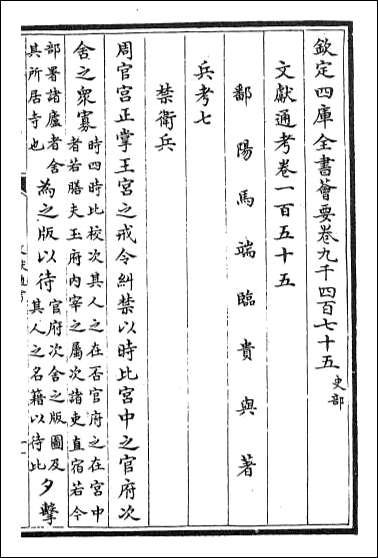 欽定四庫全書薈要卷九千四百七十五 史部
文獻通考卷一百五十五
鄱陽馬端臨貴與著
兵考七
禁衛兵
周官宮正掌王宮之戒令糾禁以時比宮中之官府次
舍之衆寡 時四時比校次其人之在否官府之在宮中
者若膳夫玉府内宰之屬次諸吏直宿若今
部署諸廬者舍
其所居寺也 為之版以待 官府次舍之版圖及
其人之名籍以待比 夕擊